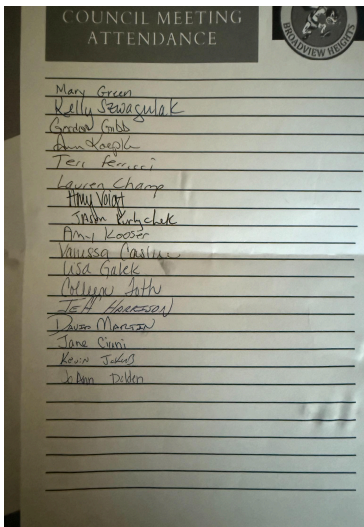 COUNCIL MEETING
ATTENDANCE
BROADVIEW HEIGHTS
Mary Green
Kelly Szwagulak
Gordon Gibb
Ann
Teri Ferricci
Lauren Champ
Amy Voigt
Jason
Amy Kooser
Vanessa
Lisa Galek
Colleen Toth
JEFF HARRISON
DAVID MARTIN
Jane Ciuni
Kevin
JoAnn Dilden